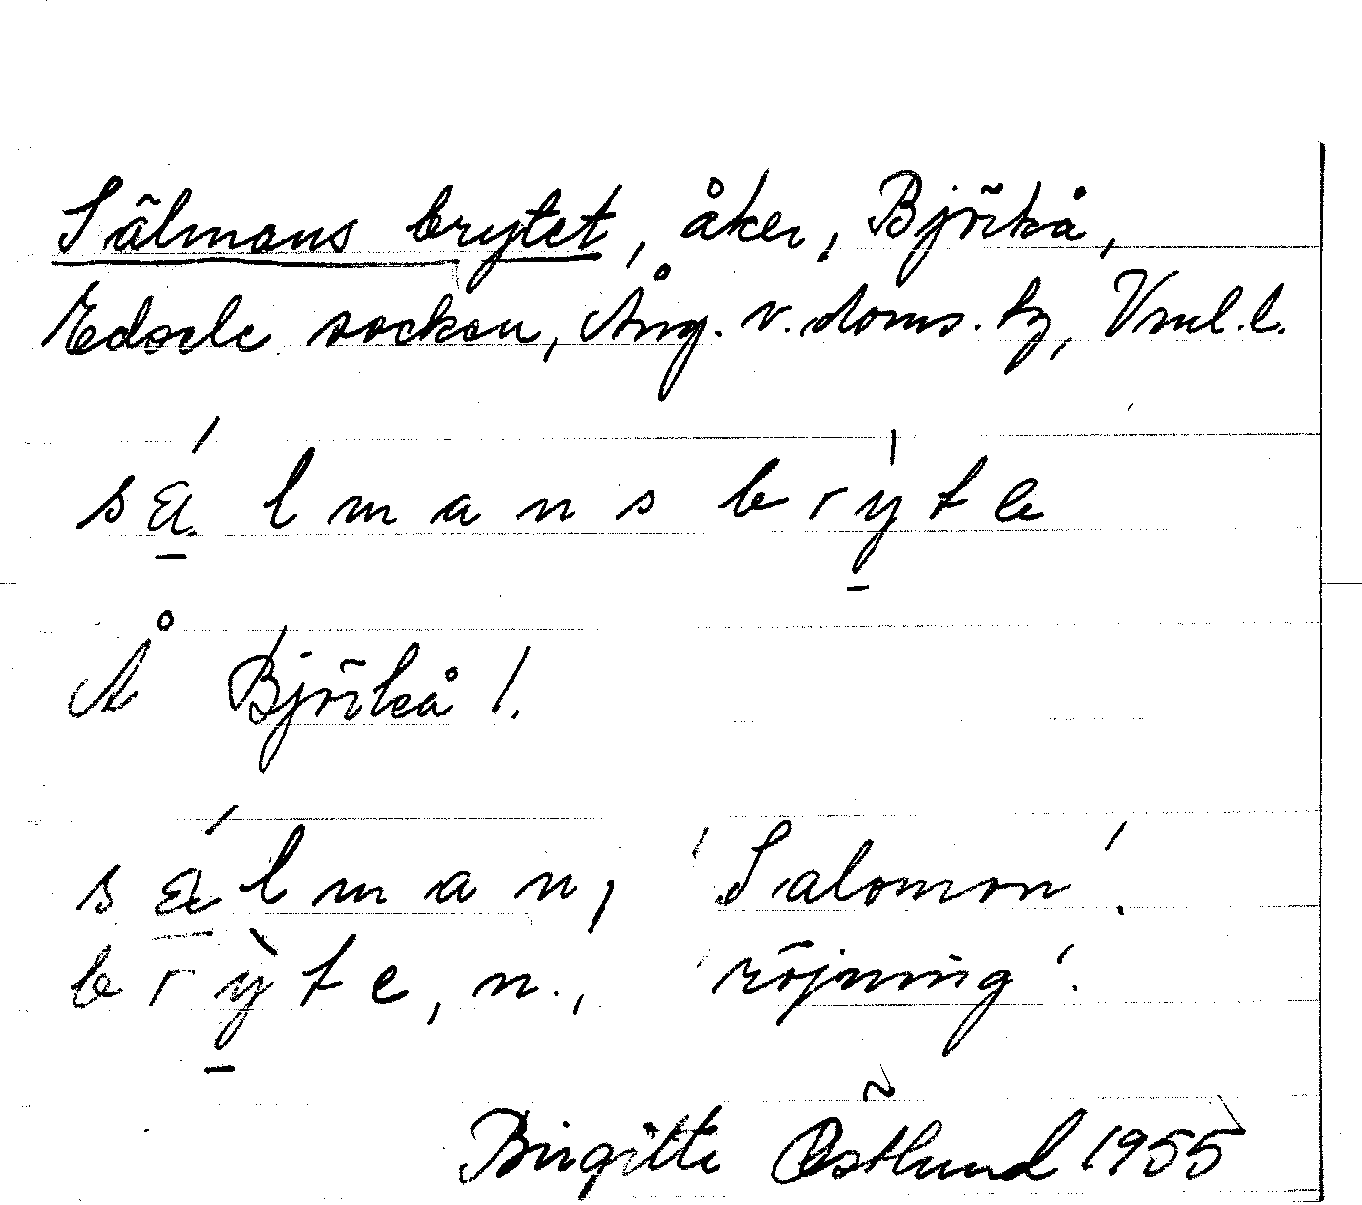 Sälmans brytet, åker, Björkå,
Edsele socken, Ång. v. doms. hg, Vnl.l.
sä́lmansbrỳte
Å Björkå 1.
sä́lman, 'Salomon'.
brỳte, n., 'röjning'.
Birgitta Östlund 1955